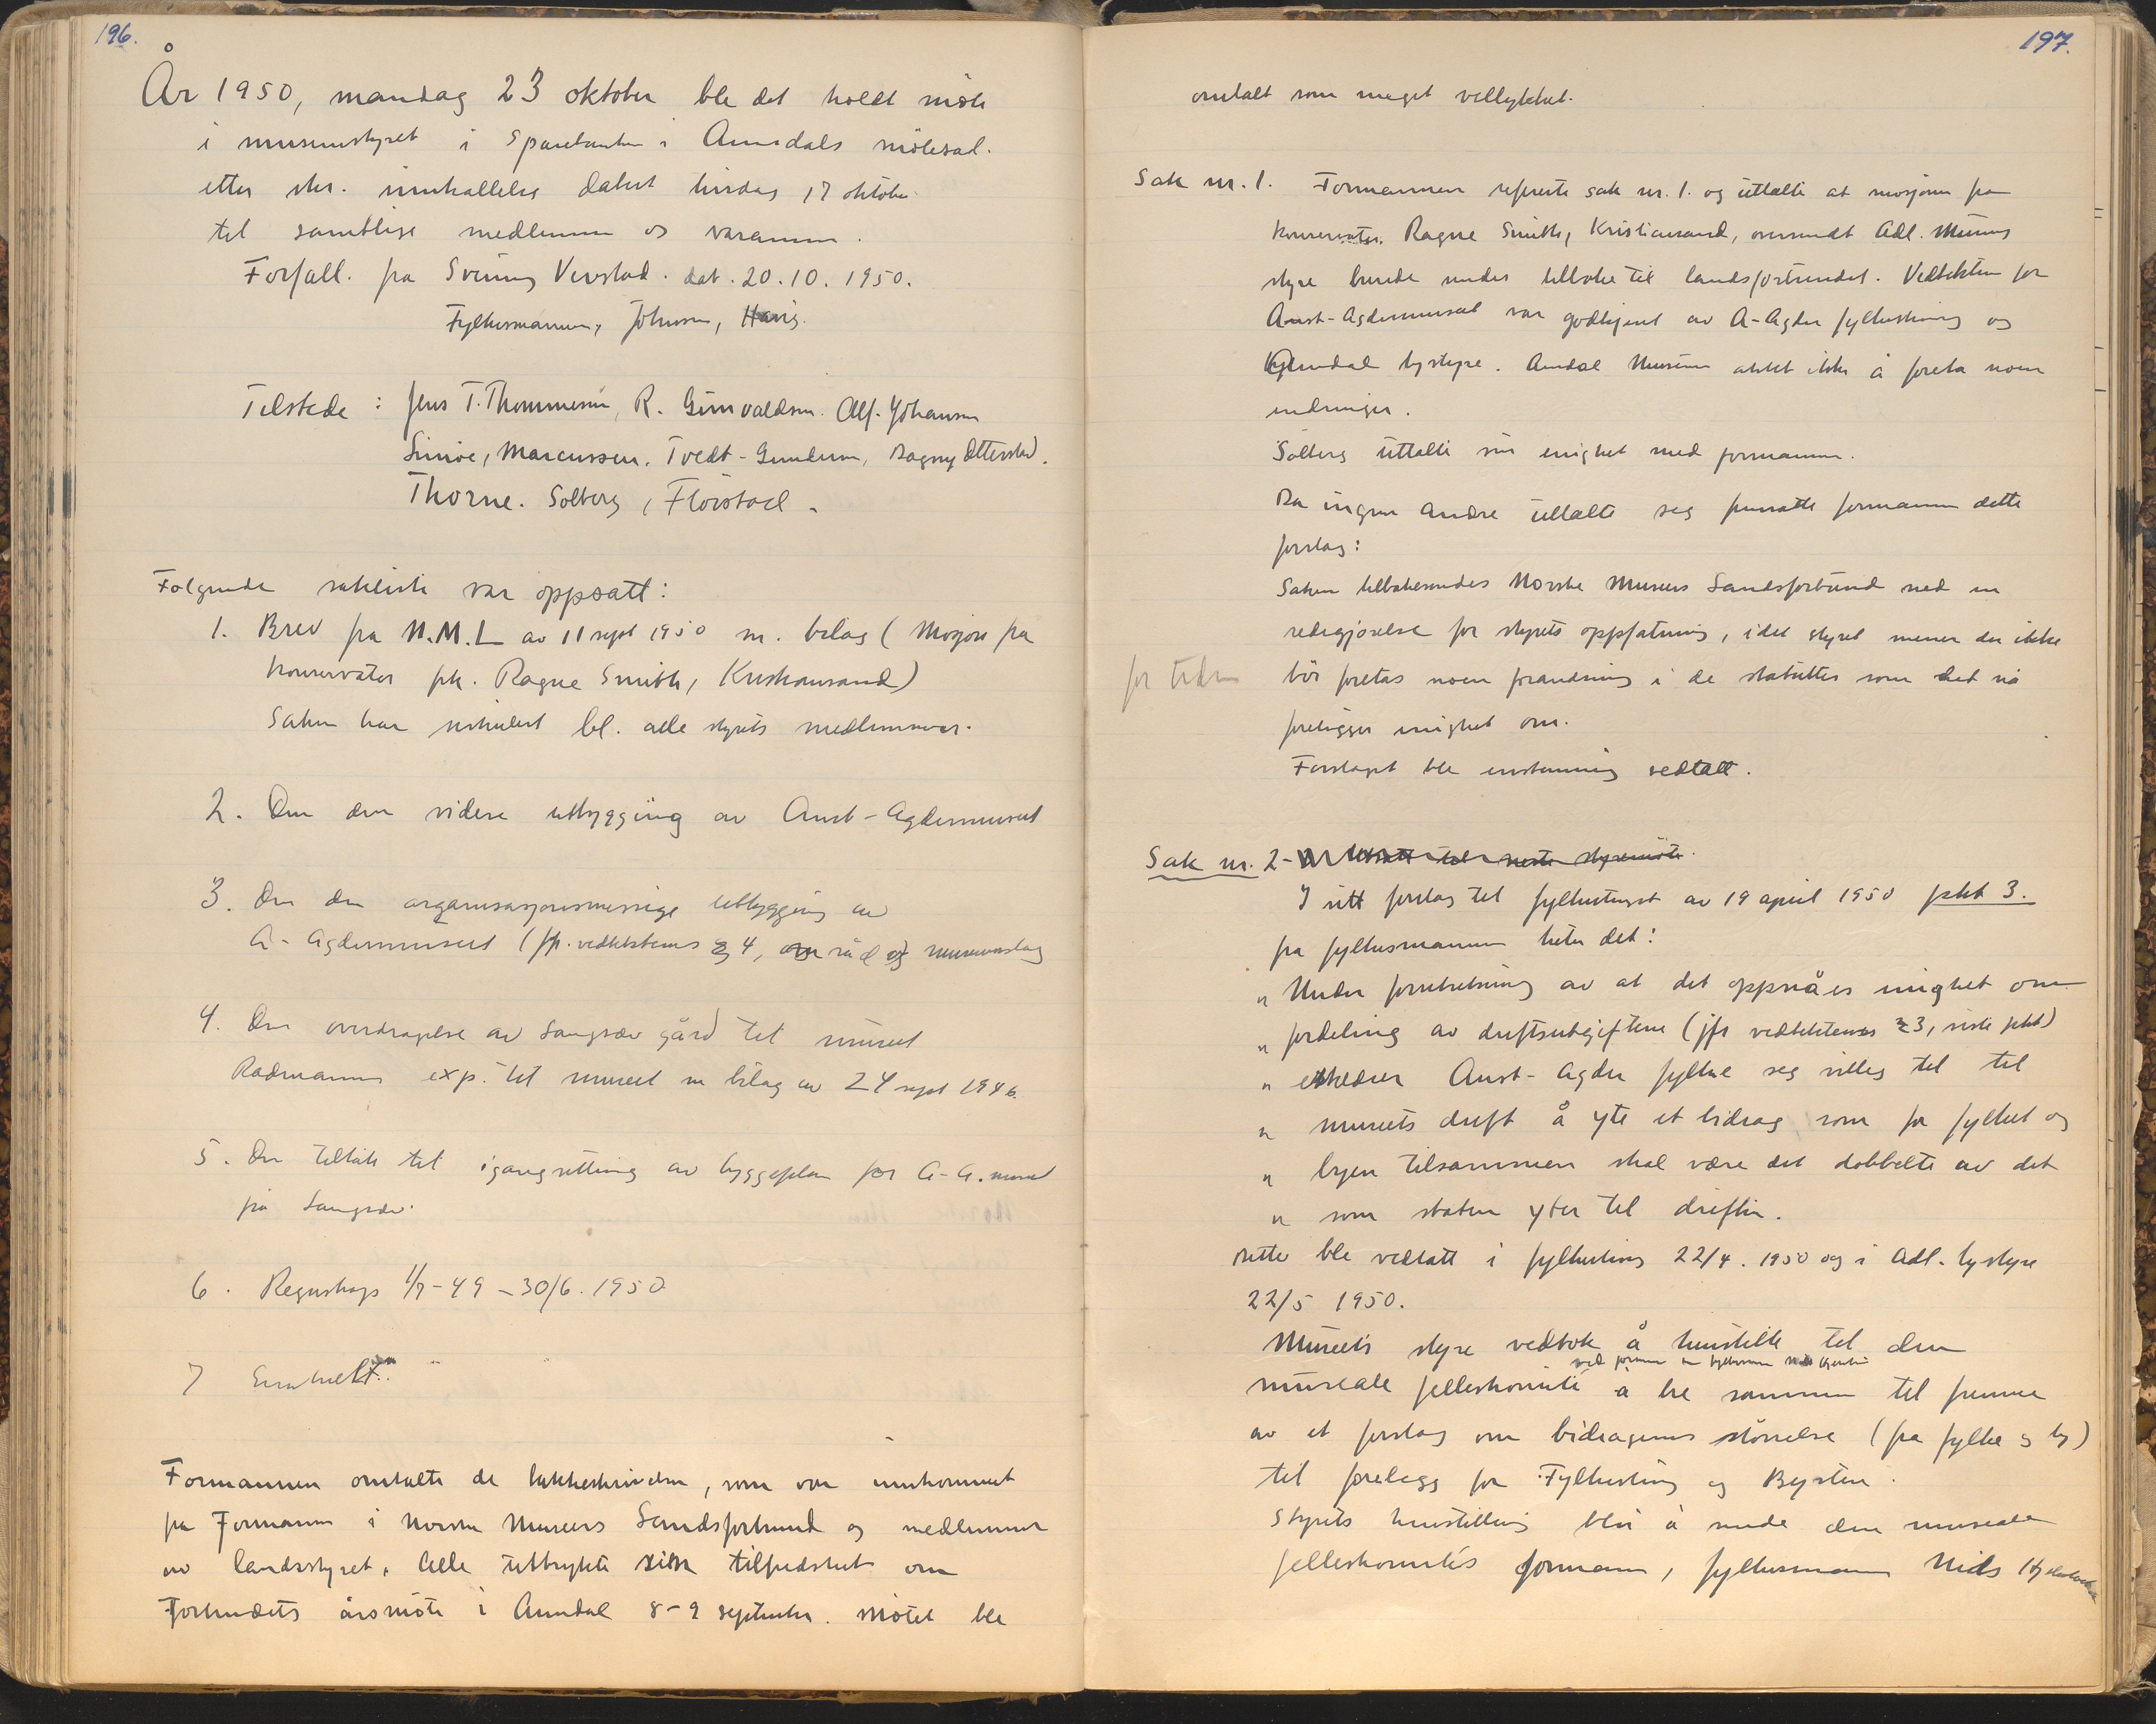 196.
År 1950, mandag 23 oktober ble det holdt møte
i museumstyret i Sparebanken i Arendals møtesal.
etter skr. innkallelse datert tirsdag 17 oktober
til samtlige medlemmer og varamenn.
Forfall. fra Sveinung Verstad. dat. 20.10.1950.
Fylkesmannen, Johnsen,
Tilstede: Jens T. Thommesen, R. Gunvaldsen. Alf. Johansen
Marcussen. Tvedt-Gundersen, Dagny Etterstad.
Thorne. Solberg, Flørstad.
Følgende sakliste var oppsatt:
1. Brev fra N.M.L av 11 sept 1950 m. bilag (Mosjon fra
konservator frk. Ragne Smith, Kristiansand)
Saken har sirkulert bl. alle styrets medlemmer.
2. Om den videre utbygging av Aust-Agdermuseet
3. Om den organisasjonsmessige utbygging av
A-Agdermuseet (jfr. vedtektenes § 4, om råd og museumslag
4. Om overdragelse av Langsæ gård til museet
Rådmannens exp. til museet m bilag av 24 sept 1946.
5. Om tiltak til igangsetting av byggeplan for A-A. museet
på Langsæ.
6. Regnskap 1/7-49 - 30/6. 1950
7 Eventuelt.
Formannen omtalte de takkeskrivelser, som var innkommet
fra Formannen i Norske Museers Landsforbund og medlemmer
av landsstyret. Alle uttrykte sin tilfredshet om
Forbundets årsmøte i Arendal 8-9 september. Møtet ble
197.
omtalt som meget vellykket.
Sak nr. 1. Formannen refererte sak nr. 1. og uttalte at mosjonen fra
konservator Ragne Smith, Kristiansand, oversendt Adl. Museums
styre burde sendes tilbake til landsforbundet. Vedtektene for
Aust-Agdermuseet var godkjent av A-Agder fylkesting og
Arendal bystyre. Arendal Museum aktet ikke å foreta noen
endringer.
Solberg uttalte sin enighet med formannen.
Da ingen andre uttalte seg fremsatte formannen dette
forslag:
Saken tilbakesendes Norske Museers Landsforbund med en
redegjørelse for styrets oppfatning, idet styret mener der ikke
for tiden bør foretas noen forandring i de statutter som det nå
foreligger enighet om.
Forslaget ble enstemmig vedtatt.
Sak nr. 2 - Utsatt til neste styremøte.
I sitt forslag til fylkestinget av 19 april 1950 pkt 3.
fra fylkesmannen heter det:
" Under forutsetning av at det oppnåes enighet om
" fordeling av driftsutgiftene (jfr vedtektenes § 3, siste pkt)
" erklærer Aust-Agder fylke seg villig til til
" museets drift å yte et bidrag som for fylket og
" byen tilsammen skal være det dobbelte av det
" som staten yter til driften.
Dette ble vedtatt i fylkesting 22/4. 1950 og i Adl. bystyre
22/5 1950.
Museets styre vedtok å henstille til den
ved formann fylkesmann Nils
museale felleskomité å tre sammen til fremme
av et forslag om bidragenes størrelse (fra fylke og by)
til forelegg for Fylkesting og Bystyre.
Styrets henstilling blir å sende den museale
felleskomités formann, fylkesmann Nils Hjelmtveit